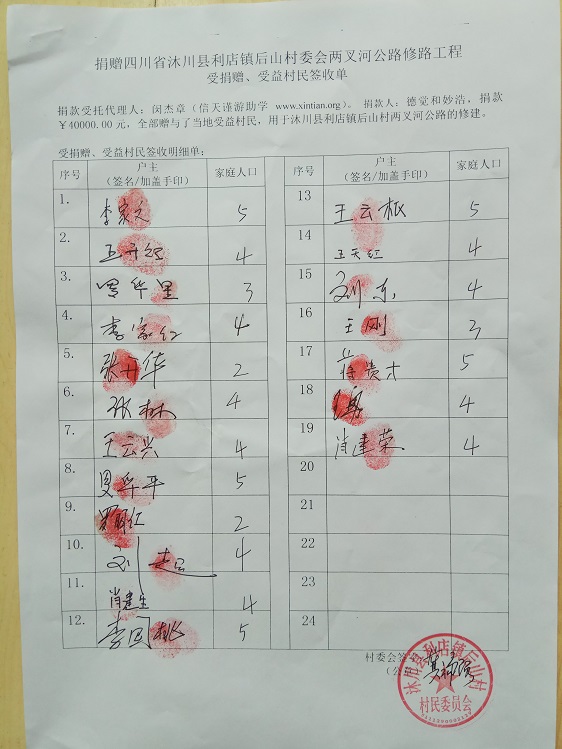 捐赠四川省沐川县利店镇后山村委会两叉河公路修路工程
受捐赠、受益村民签收单
捐款受托代理人：闵杰章（信天谨游助学 www.xintian.org）。 捐款人：德觉和妙浩，捐款
￥40000.00 元，全部赠与了当地受益村民，用于沐川县利店镇后山村两叉河公路的修建。
受捐赠、受益村民签收明细单：
序号 户主 家庭人口
（签名/加盖手印）
1. 李家文 5
2. 王开红 4
3. 罗华里 3
4. 李家红 4
5. 张开华 2
6. 张林 4
7. 王云兴 4
8. 罗华平 5
9. 罗 仁 2
10. 刘 4
11. 肖建生 4
12. 李国桃 5
序号 户主 家庭人口
（签名/加盖手印）
13 王云根 5
14 王天红 4
15 刘东 4
16 王刚 3
17 蒋贵才 5
18 4
19 肖建荣 4
20
21
22
23
24
村委会签
（公
沐川县利店镇后山村
村民委员会